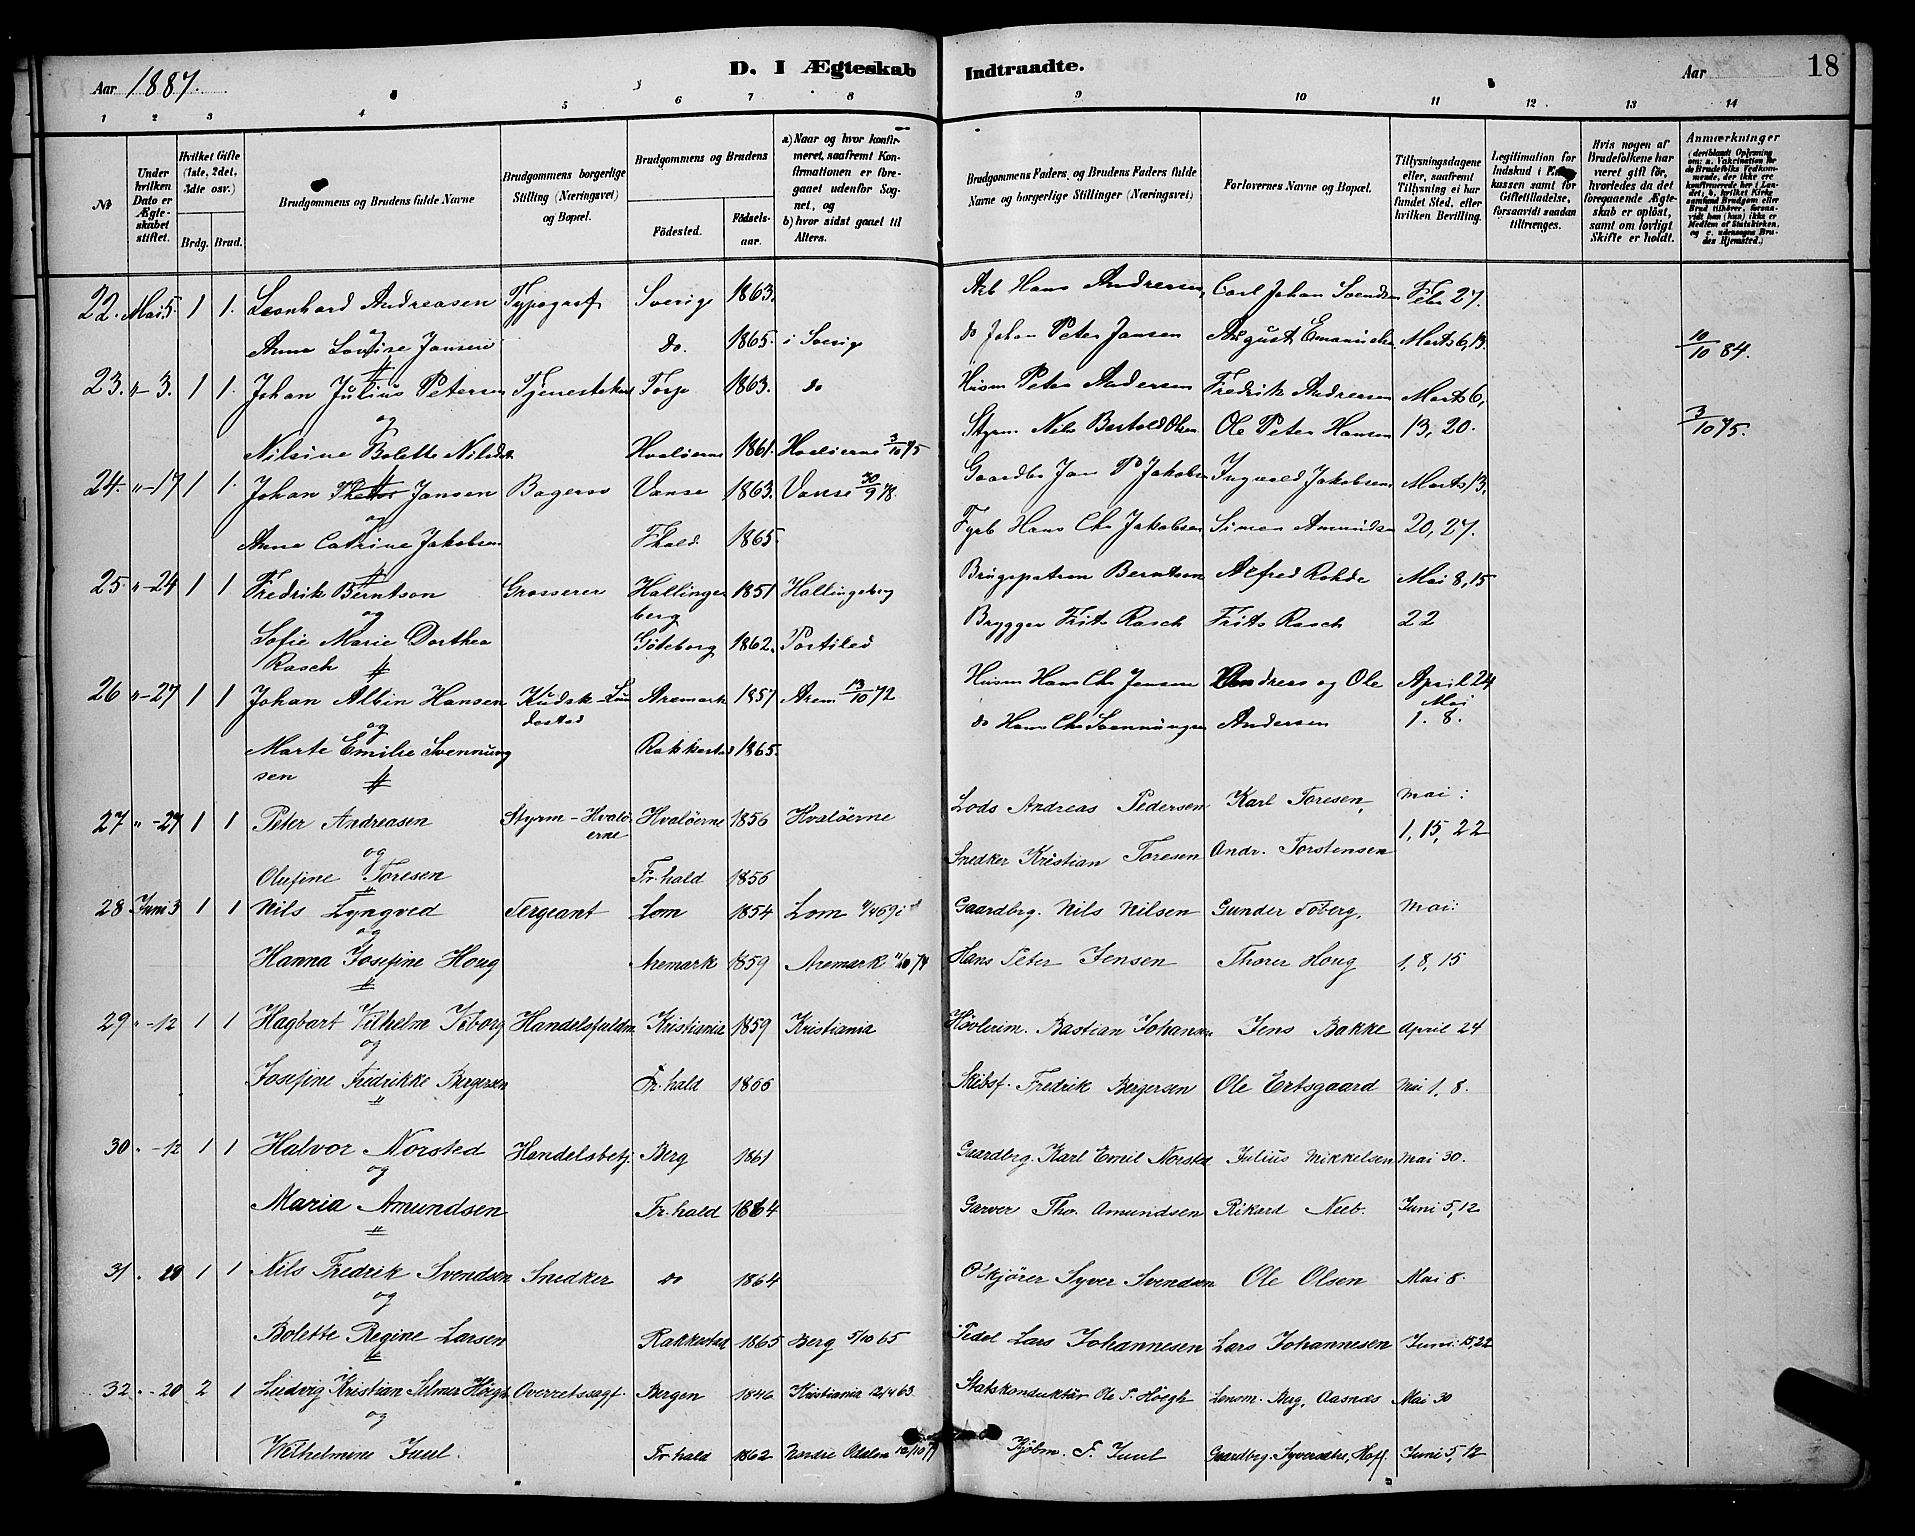 Aar 1887. D. I Ægteskab Indtraadte. Aar 18
1 2 3 4 5 6 7 8 9 10 11 12 13 14
No
Under hvilken Dato er Ægteskabet stiftet.
Hvilket Gifte (1ste, 2det, 3die osv.)
Brdg. Brud.
Brudgommens og Brudens fulde Navne
Brudgommens borgerlige Stilling (Næringsvei) og Bopæl.
Brudgommens og Brudens
Fødested. Fødselsaar.
a) Naar og hvor konfirmeret, saafremt Konfirmationen er foregaaet udenfor Sognet, og
b) hvor sidst gaaet til Alters.
Brudgommens Faders, og Brudens Faders fulde Navne og borgerlige Stillinger (Næringsvei)
Forlovernes Navne og Bopæl.
Tillysningsdagene eller, saafremt Tillysning ei har fundet Sted, efter hvilken Bevilling.
Legitimation for Indskud i Enkekassen samt for Giftetilladelse, forsaavidt saadan tiltrænges.
Hvis nogen af Brudefolkene har været gift før, hvorledes da det foregaaende Ægteskab er opløst, samt om lovligt Skifte er holdt.
Anmærkninger
(deriblandt Oplysning om: a. Vakcination for de Brudefolks Vedkommende, der ikke ere konfirmerede her i Landet; b. hvilket Kirkesamfund Brudgom eller Brud tilhører, forsaavidt han (hun) ikke er Medlem af Statskirken, og c. udensogns Brudes Hjemsted.)
22. Mai 5. 1 1. Leonhard Andreasen Typograf Sverig 1863. Arb Hans Andersen, Carl Johan Svendsen Febr 27.
og
Anna Lovise Jansen Do. 1865. i Sverig do Johan Peter Jansen August Emanuelsen Marts 6, 13. 10/10 84.
23. " 3. 1 1. Johan Julius Petersen Tjenestekarl Torp 1863. do Husm Peter Andersen Fredrik Andreasen Marts 6,
og
Nilsine Bolette Nilsdtr Hvaløerne 1861. Hvaløerne 3/10 75 Styrm Nils Bertold Olsen Ole Peter Hansen 13, 20. 3/10 75.
24. " -17 1 1. Johan Jansen Bagersv Vanse 1863. Vanse 30/9 78. Gaardbr Jan P Jakobsen Ingvald Jakobsen Marts 13,
og
Anna Catrine Jakobsen Fhald 1865. Fyrb Hans Chr Jakobsen Simen Amundsen 20, 27.
25 " -24 1 1 Fredrik Berntson Grosserer Hallingeberg 1851 Hallingeberg Brugspatron Berntson Alfred Rohde Mai 8, 15
og
Sofie Marie Dorthea Rasch Göteborg 1862. Brygger Frits Rasch Frits Rasch 22
26 " -27 1 1 Johan Albin Hansen Kudsk Aremark 1857 Arem 13/10 72 Husm Hans Chr Jensen Andreas og Ole April 24
og
Marte Emilie Svennungsen Rakkestad 1865. do Hans Chr Svennungsen Andersen Mai 1. 8.
27 " -27 1 1 Peter Andreasen Styrm - Hvaløerne Hvaløerne 1856 Hvaløerne Lods Andreas Pedersen Karl Toresen, Mai:
og
Olufine Toresen Fr.hald 1856 Snedker Kristian Toresen Andr. Torstensen 1, 15, 22
28 Juni 3 1 1 Nils Lyngved Sergeant Lom 1854 Lom Gaardbrg. Nils Nilsen Gunder Toberg, Mai:
og
Hanna Josefine Houg Aremark 1859 Aremark Hans Peter Jensen Thorer Houg 1, 8, 15
29 " -12 1 1 Hagbart Vilhelm Viborg Handelsfuldm. Kristiania 1859 Kristiania Høvlerim. Bastian Johansen Jens Bakke April 24
og
Josefine Fredrikke Bergersen Fr.hald 1866 Skibsf. Fredrik Bergersen Ole Ertsgaard Mai 1, 8.
30 " -12 1 1 Halvor Norsted Handelsbetj. Berg 1861 Gaardbrg. Karl Emil Norsted Julius Mikkelsen Mai 30.
og
Maria Amundsen Fr.hald 1864 Garver Thor Amundsen Rikard Neeb. Juni 5, 12
31 " 20 1 1 Nils Fredrik Svendsen Snedker do 1864 Syver Svendsen Ole Olsen Mai 8.
og
Bolette Regine Larsen Rakkestad 1865 Berg 5/10 65 Lars Johannesen Lars Johannesen Juni 15, 22
32 " -20 2 1 Ludvig Kristian Selmer Høegh Overretssagf. Bergen 1846 Kristiania 12/4 63 Statskonduktør Ole P. Høegh Lensm. Berg, Aasnæs Mai 30
og
Vilhelmine Juul. Fr.hald 1862 Nordre Odalen 12/10 77 Kjøbm. F. Juul Gaardbrg. Syversdtr, Hoff. Juni 5, 12